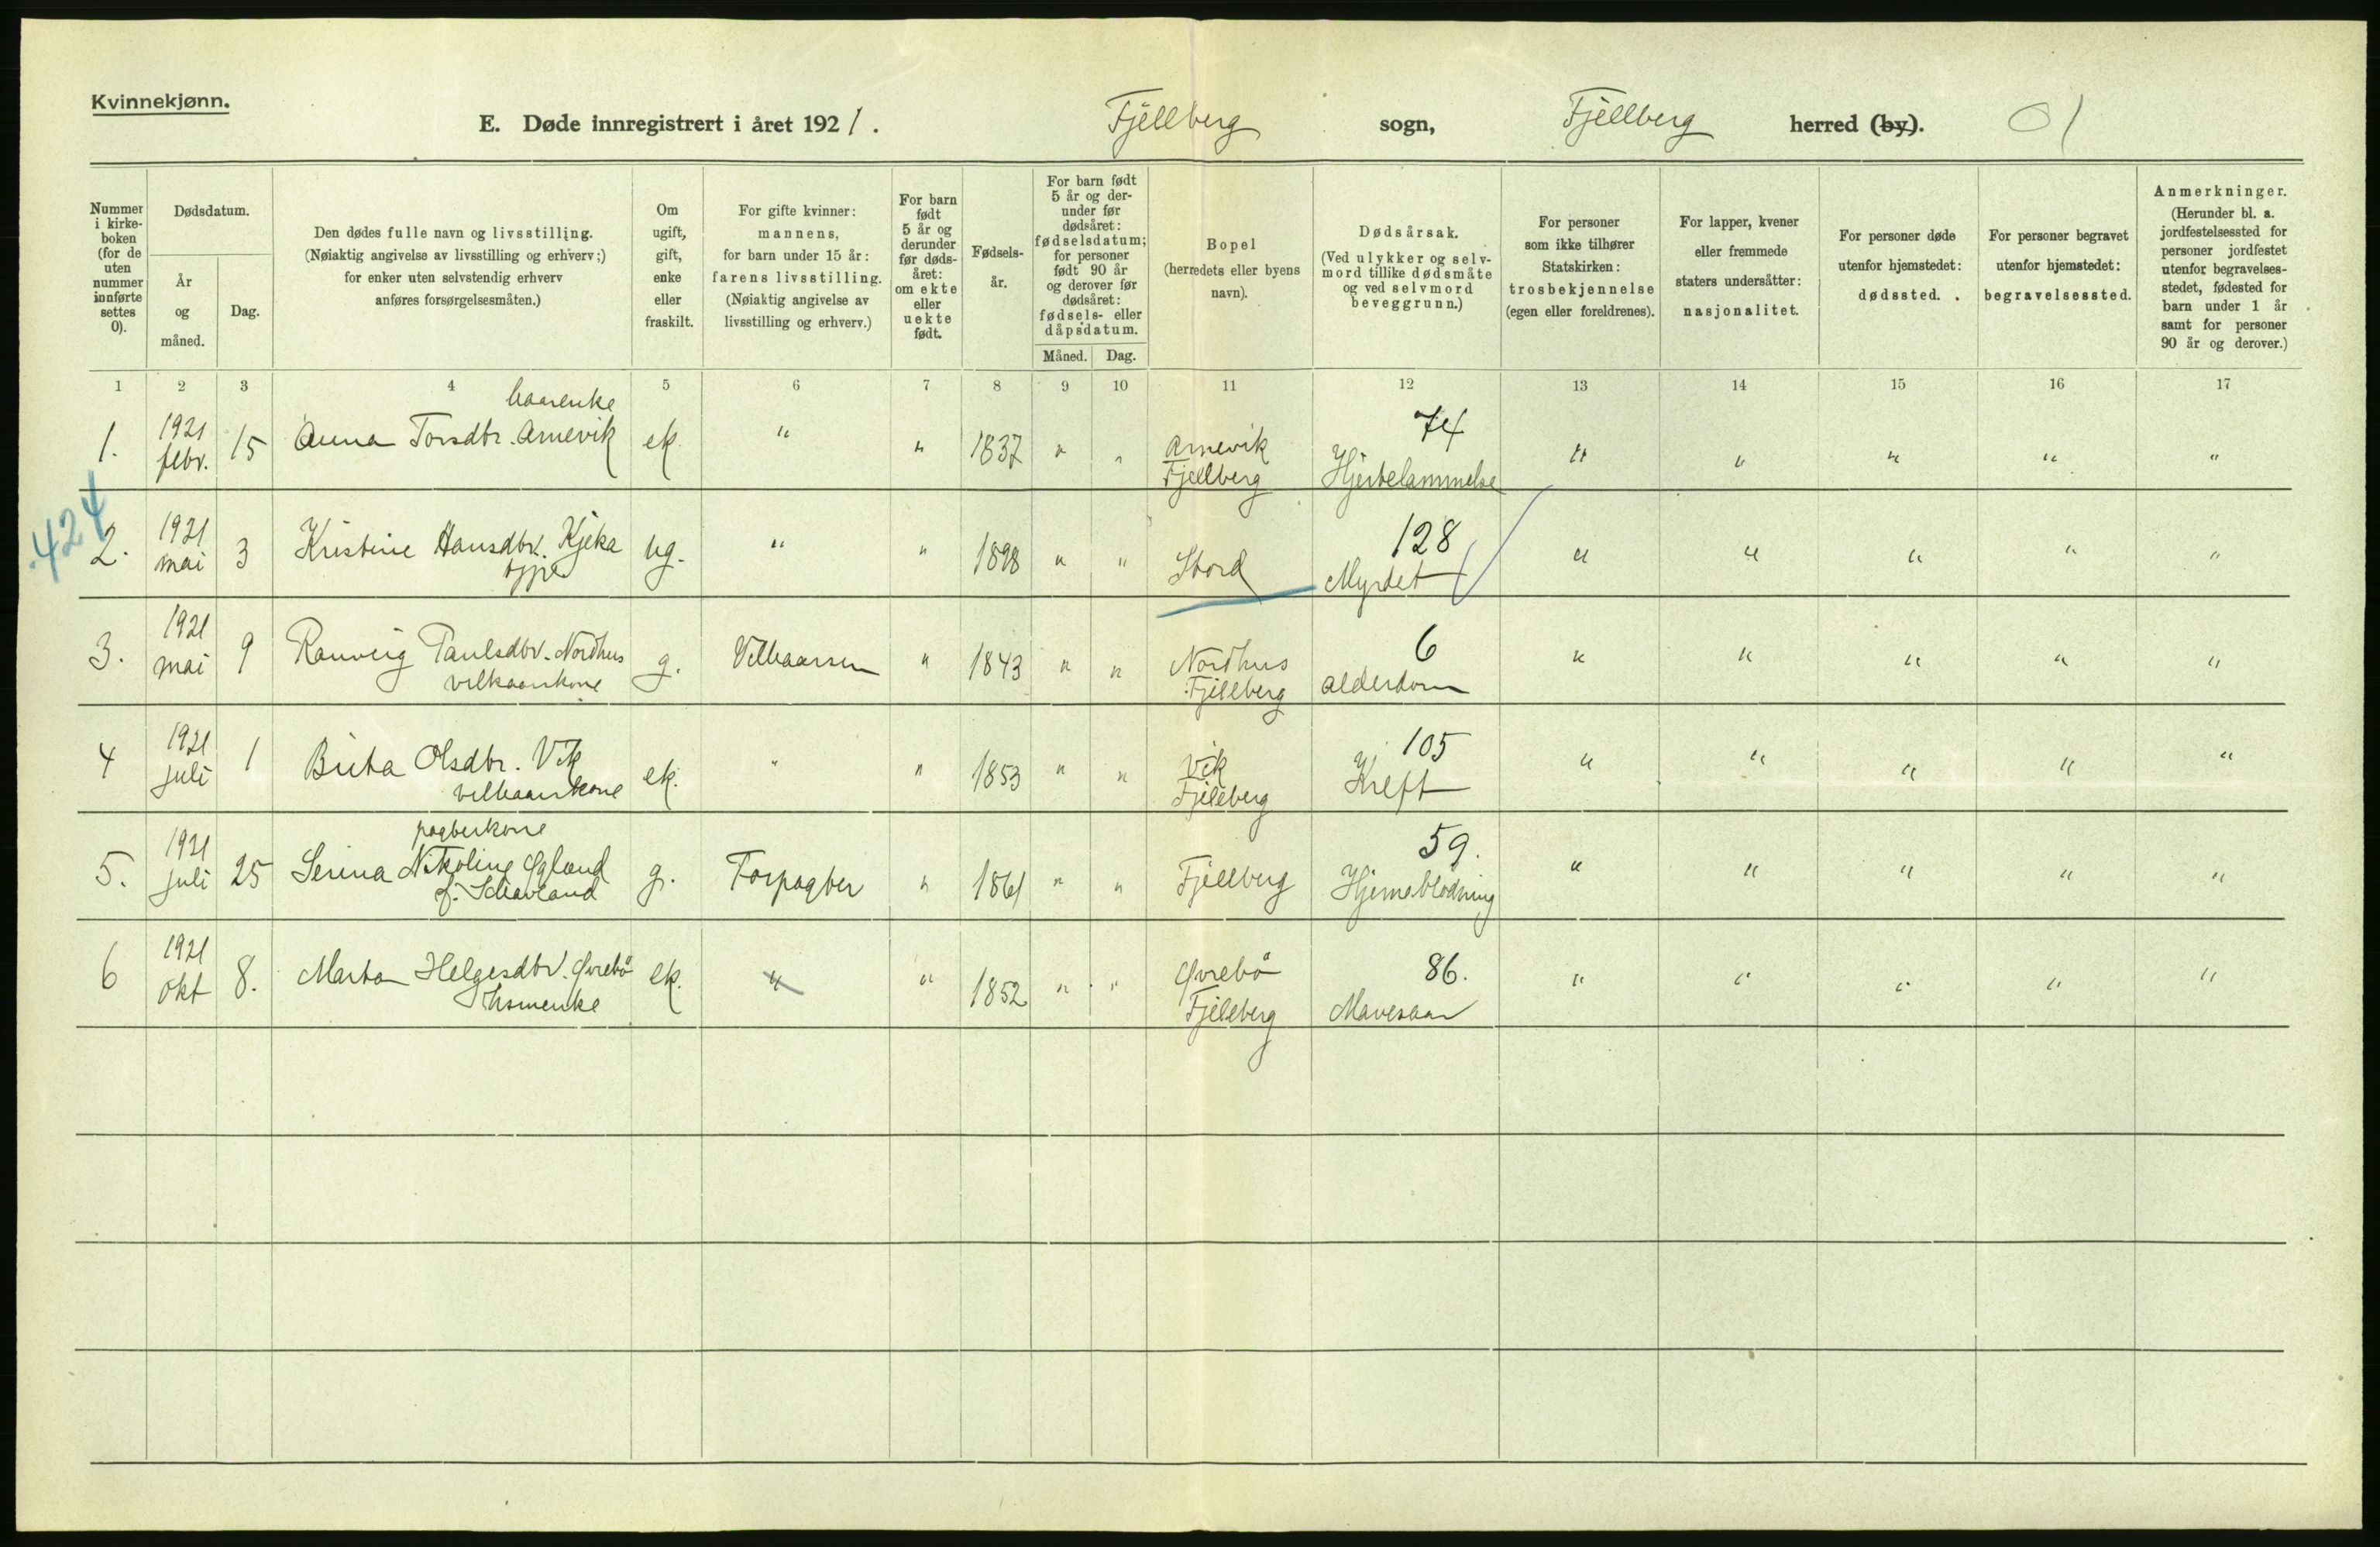 Kvinnekjønn.
E. Døde innregistrert i året 1921. Fjellberg sogn, Fjellberg herred (by). 01
Nummer i kirke-boken (for de uten nummer innførte settes 0).
Dødsdatum.
År og måned.
Dag.
Den dødes fulle navn og livsstilling.
(Nøiaktig angivelse av livsstilling og erhverv;)
for enker uten selvstendig erhverv
anføres forsørgelsesmåten.)
Om ugift, gift, enke eller fraskilt.
For gifte kvinner:
mannens,
for barn under 15 år:
farens livsstilling.
(Nøiaktig angivelse av
livsstilling og erhverv.)
For barn født 5 år og derunder før døds-året: om ekte eller uekte født.
Fødsels-år.
For barn født 5 år og der-under før dødsåret: fødselsdatum; for personer født 90 år og derover før dødsåret: fødsels- eller dåpsdatum.
Måned. Dag.
Bopel
(herredets eller byens
navn).
Dødsårsak.
(Ved ulykker og selv-
mord tillike dødsmåte
og ved selvmord
beveggrunn.)
For personer
som ikke tilhører
Statskirken:
trosbekjennelse
(egen eller foreldrenes).
For lapper, kvener
eller fremmede
staters undersåtter:
nasjonalitet.
For personer døde
utenfor hjemstedet:
dødssted.
For personer begravet
utenfor hjemstedet:
begravelsessted.
Anmerkninger.
(Herunder bl. a.
jordfestelsessted for
personer jordfestet
utenfor begravelses-
stedet, fødested for
barn under 1 år
samt for personer
90 år og derover.)
1 2 3 4 5 6 7 8 9 10 11 12 13 14 15 16 17
1. 1921 febr. 15 Anna Torsdtr. Arnevik ek " " 1837 " " Arnevik Fjellberg 74 Hjertelammelse " " " " "
424
2. 1921 mai 3 Kristine Hansdtr. Kjeka ug. " " 1898 " " Stord 128 Myrdet " " " " "
3. 1921 mai 9 Ranveig Paulsdtr. Nordhus vilkaarskone g. Vilkaarsm " 1843 " " Nordhus Fjellberg 6 Alderdom " " " " "
4 1921 juli 1 Brita Olsdtr. Vik vilkaarskone ek. " " 1853 " " Vik Fjellberg 105 Kreft " " " " "
5. 1921 juli 25 Serina Nikoline Ogland g. Forpagter " 1861 " " Fjellberg 59. Hjerneblødning " " " " "
6 1921 okt 8. Marta Helgesdtr. Øvrebø ek. " " 1852 " " Øvrebø Fjellberg 86. Mavesaar " " " " "